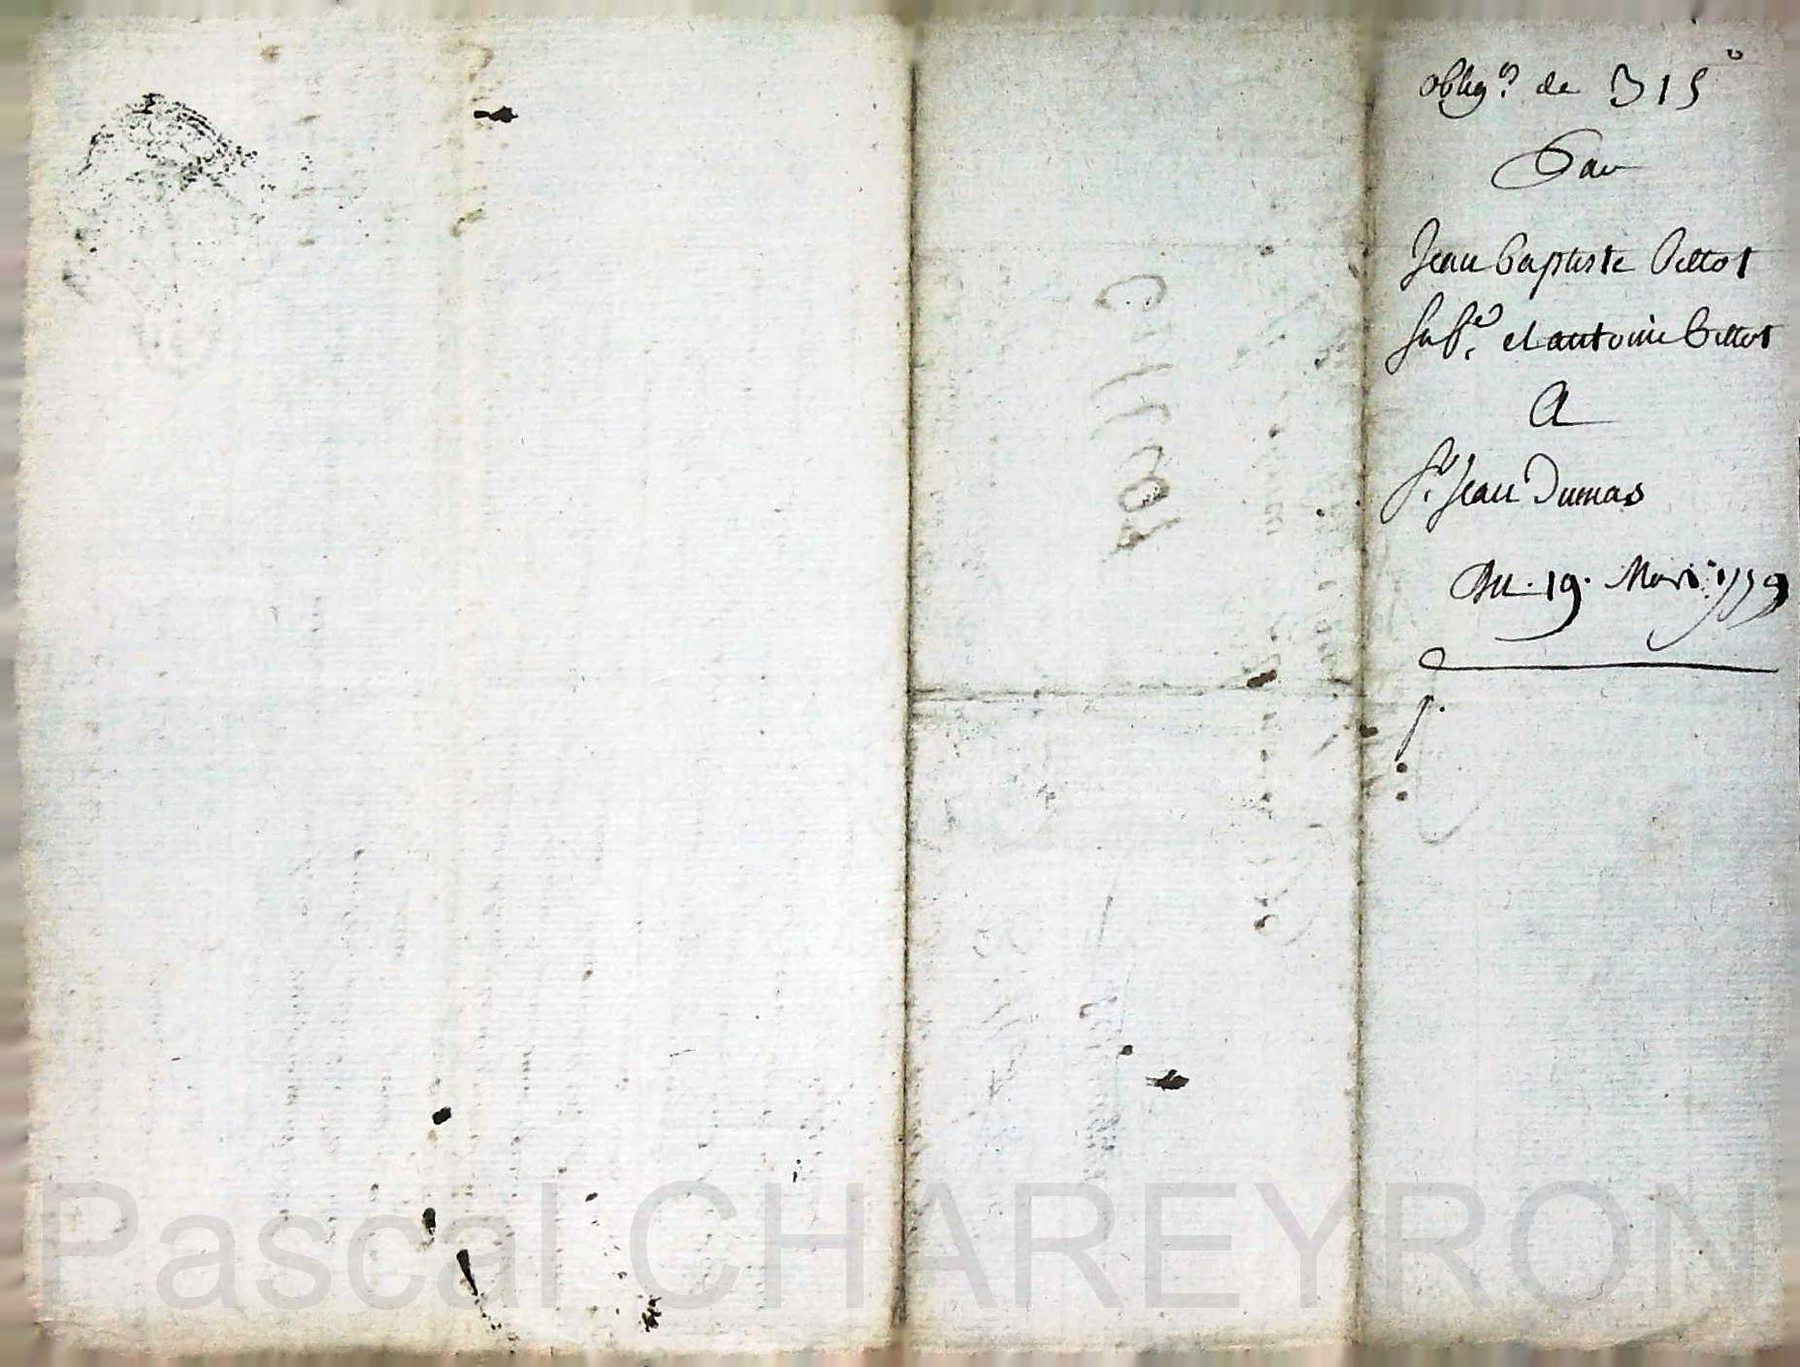 oblig.on de 315#
Par
Jean baptiste Vettot
et antoine Vettot
A
Sr Jean Dumas
Du. 19. Mars. 1779
Pascal CHAREYRON